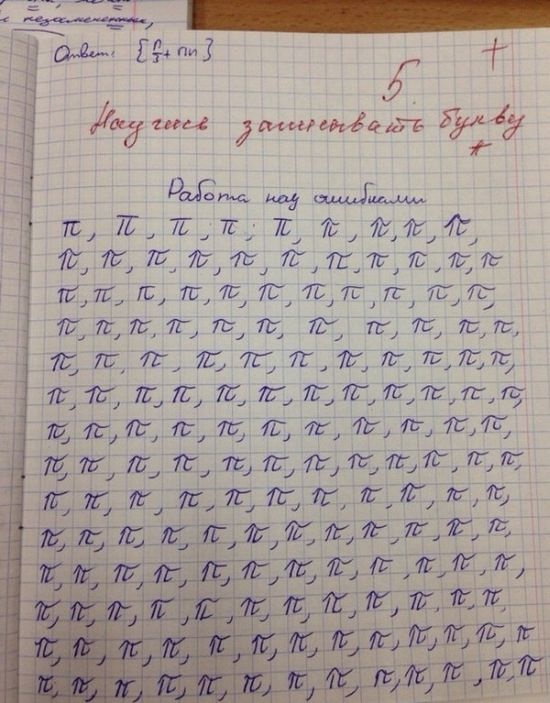 и незамененных,
Ответ: {п/3 + пn}
5 +
Научись записывать букву
*
Работа над ошибками
π, π, π, π; π, π, π, π, π,
π, π, π, π, π, π, π, π, π, π, π
π, π, π, π, π, π, π, π, π, π, π,
π, π, π, π, π, π, π, π, π, π, π,
π, π, π, π, π, π, π, π, π, π, π,
π, π, π, π, π, π, π, π, π, π, π, π,
π, π, π, π, π, π, π, π, π, π, π,
π, π, π, π, π, π, π, π, π, π, π, π,
π, π, π, π, π, π, π, π, π, π, π,
π, π, π, π, π, π, π, π, π, π, π, π,
π, π, π, π, π, π, π, π, π, π, π, π,
π, π, π, π, π, π, π, π, π, π, π, π,
π, π, π, π, π, π, π, π, π, π, π, π, π
π, π, π, π, π, π, π, π, π, π, π, π, π